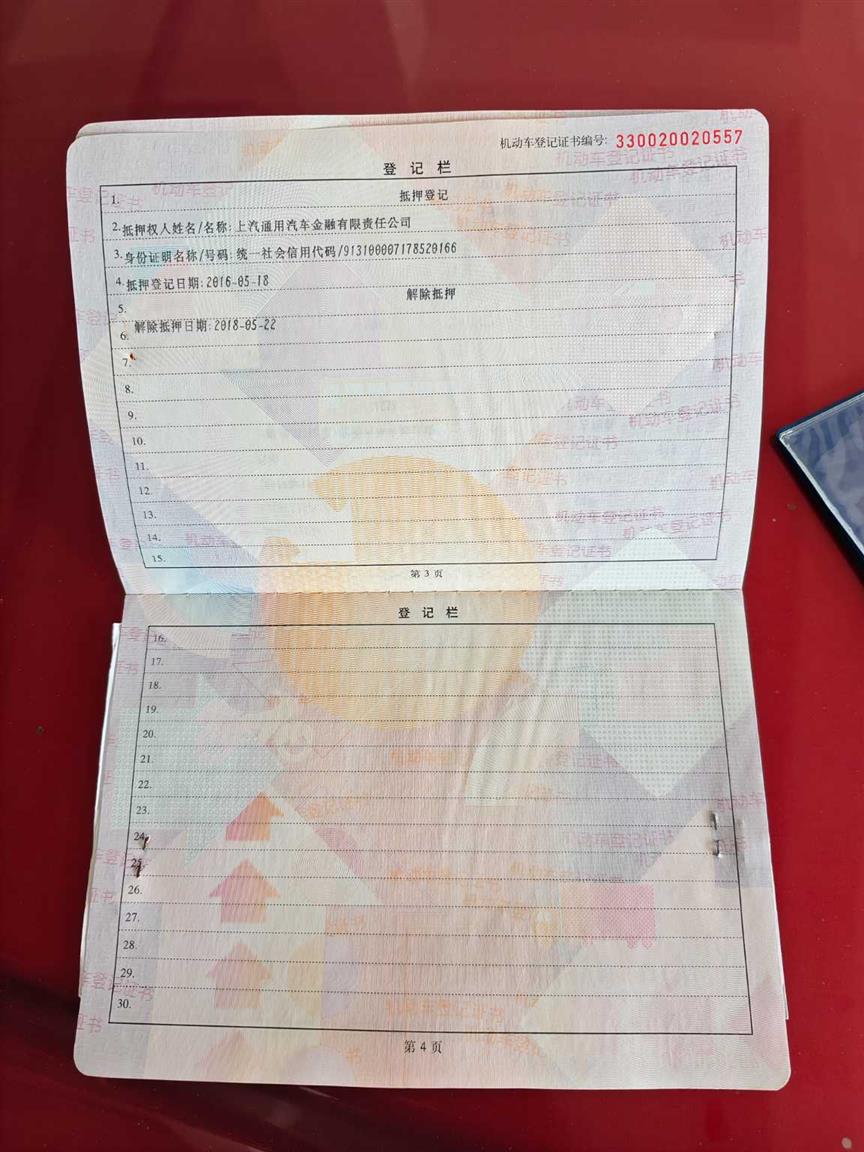 机动车登记证书编号: 330020020557
登记栏
1. 抵押登记
2. 抵押权人姓名/名称: 上汽通用汽车金融有限责任公司
3. 身份证明名称/号码: 统一社会信用代码/913100007178520166
4. 抵押登记日期: 2016-05-18
5. 解除抵押
6. 解除抵押日期: 2018-05-22
7.
8.
9.
10.
11.
12.
13.
14.
15.
第 3 页
登记栏
16.
17.
18.
19.
20.
21.
22.
23.
24.
25.
26.
27.
28.
29.
30.
第 4 页